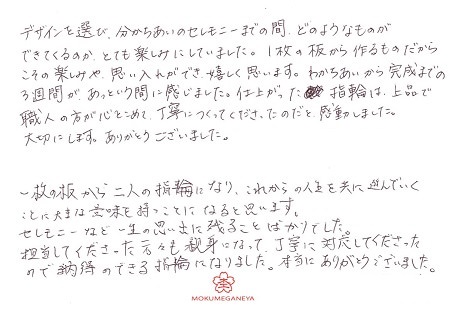 デザインを選び、分かちあいのセレモニーまでの間、どのようなものが
できてくるのか、とても楽しみにしていました。1枚の板から作るものだから
こその楽しみや、思い入れができ、嬉しく思います。わかちあいから完成までの
3週間が、あっという間に感じました。仕上がった指輪は、上品で
職人の方が心をこめて、丁寧につくってくださったのだと、感動しました。
大切にします。ありがとうございました。
一枚の板から二人の指輪になり、これからの人生を共に進んでいく
ことに大きな意味を持つことになると思います。
セレモニーなど一生の思い出に残ることばかりでした。
担当してくださった方々も親身になって、丁寧に対応してくださった
ので納得のできる指輪になりました。本当にありがとうございました。
MOKUMEGANEYA